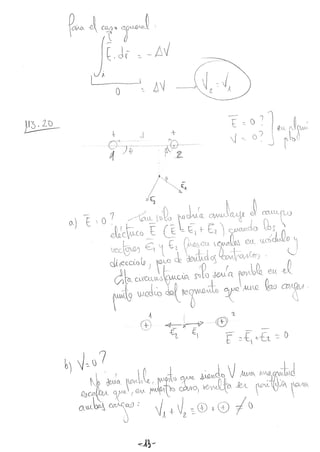 Para el caso general:
∫₁² E̅ . dr̅ = - ΔV
0 = ΔV → V₂ = V₁
113.20
E̅ = 0?
V = 0?
] en algún pto?
+ +
1 2
E₁ E₂
a) E̅ = 0? → Tan sólo podría anularse el campo
eléctrico E̅ (E̅ = E̅₁ + E̅₂) cuando los
vectores E̅₁ y E̅₂ fueran iguales en módulo y
dirección, pero de sentidos contrarios.
Esta circunstancia sólo sería posible en el
punto medio del segmento que une las cargas.
+ 1 E̅₂ E̅₁ + 2
E̅ = E̅₁ + E̅₂ = 0
b) V = 0?
No sería posible, puesto que siendo V una magnitud
escalar que, en nuestro caso, resulta ser positiva para
ambas cargas: V₁ + V₂ = ⊕ + ⊕ ≠ 0
-13-